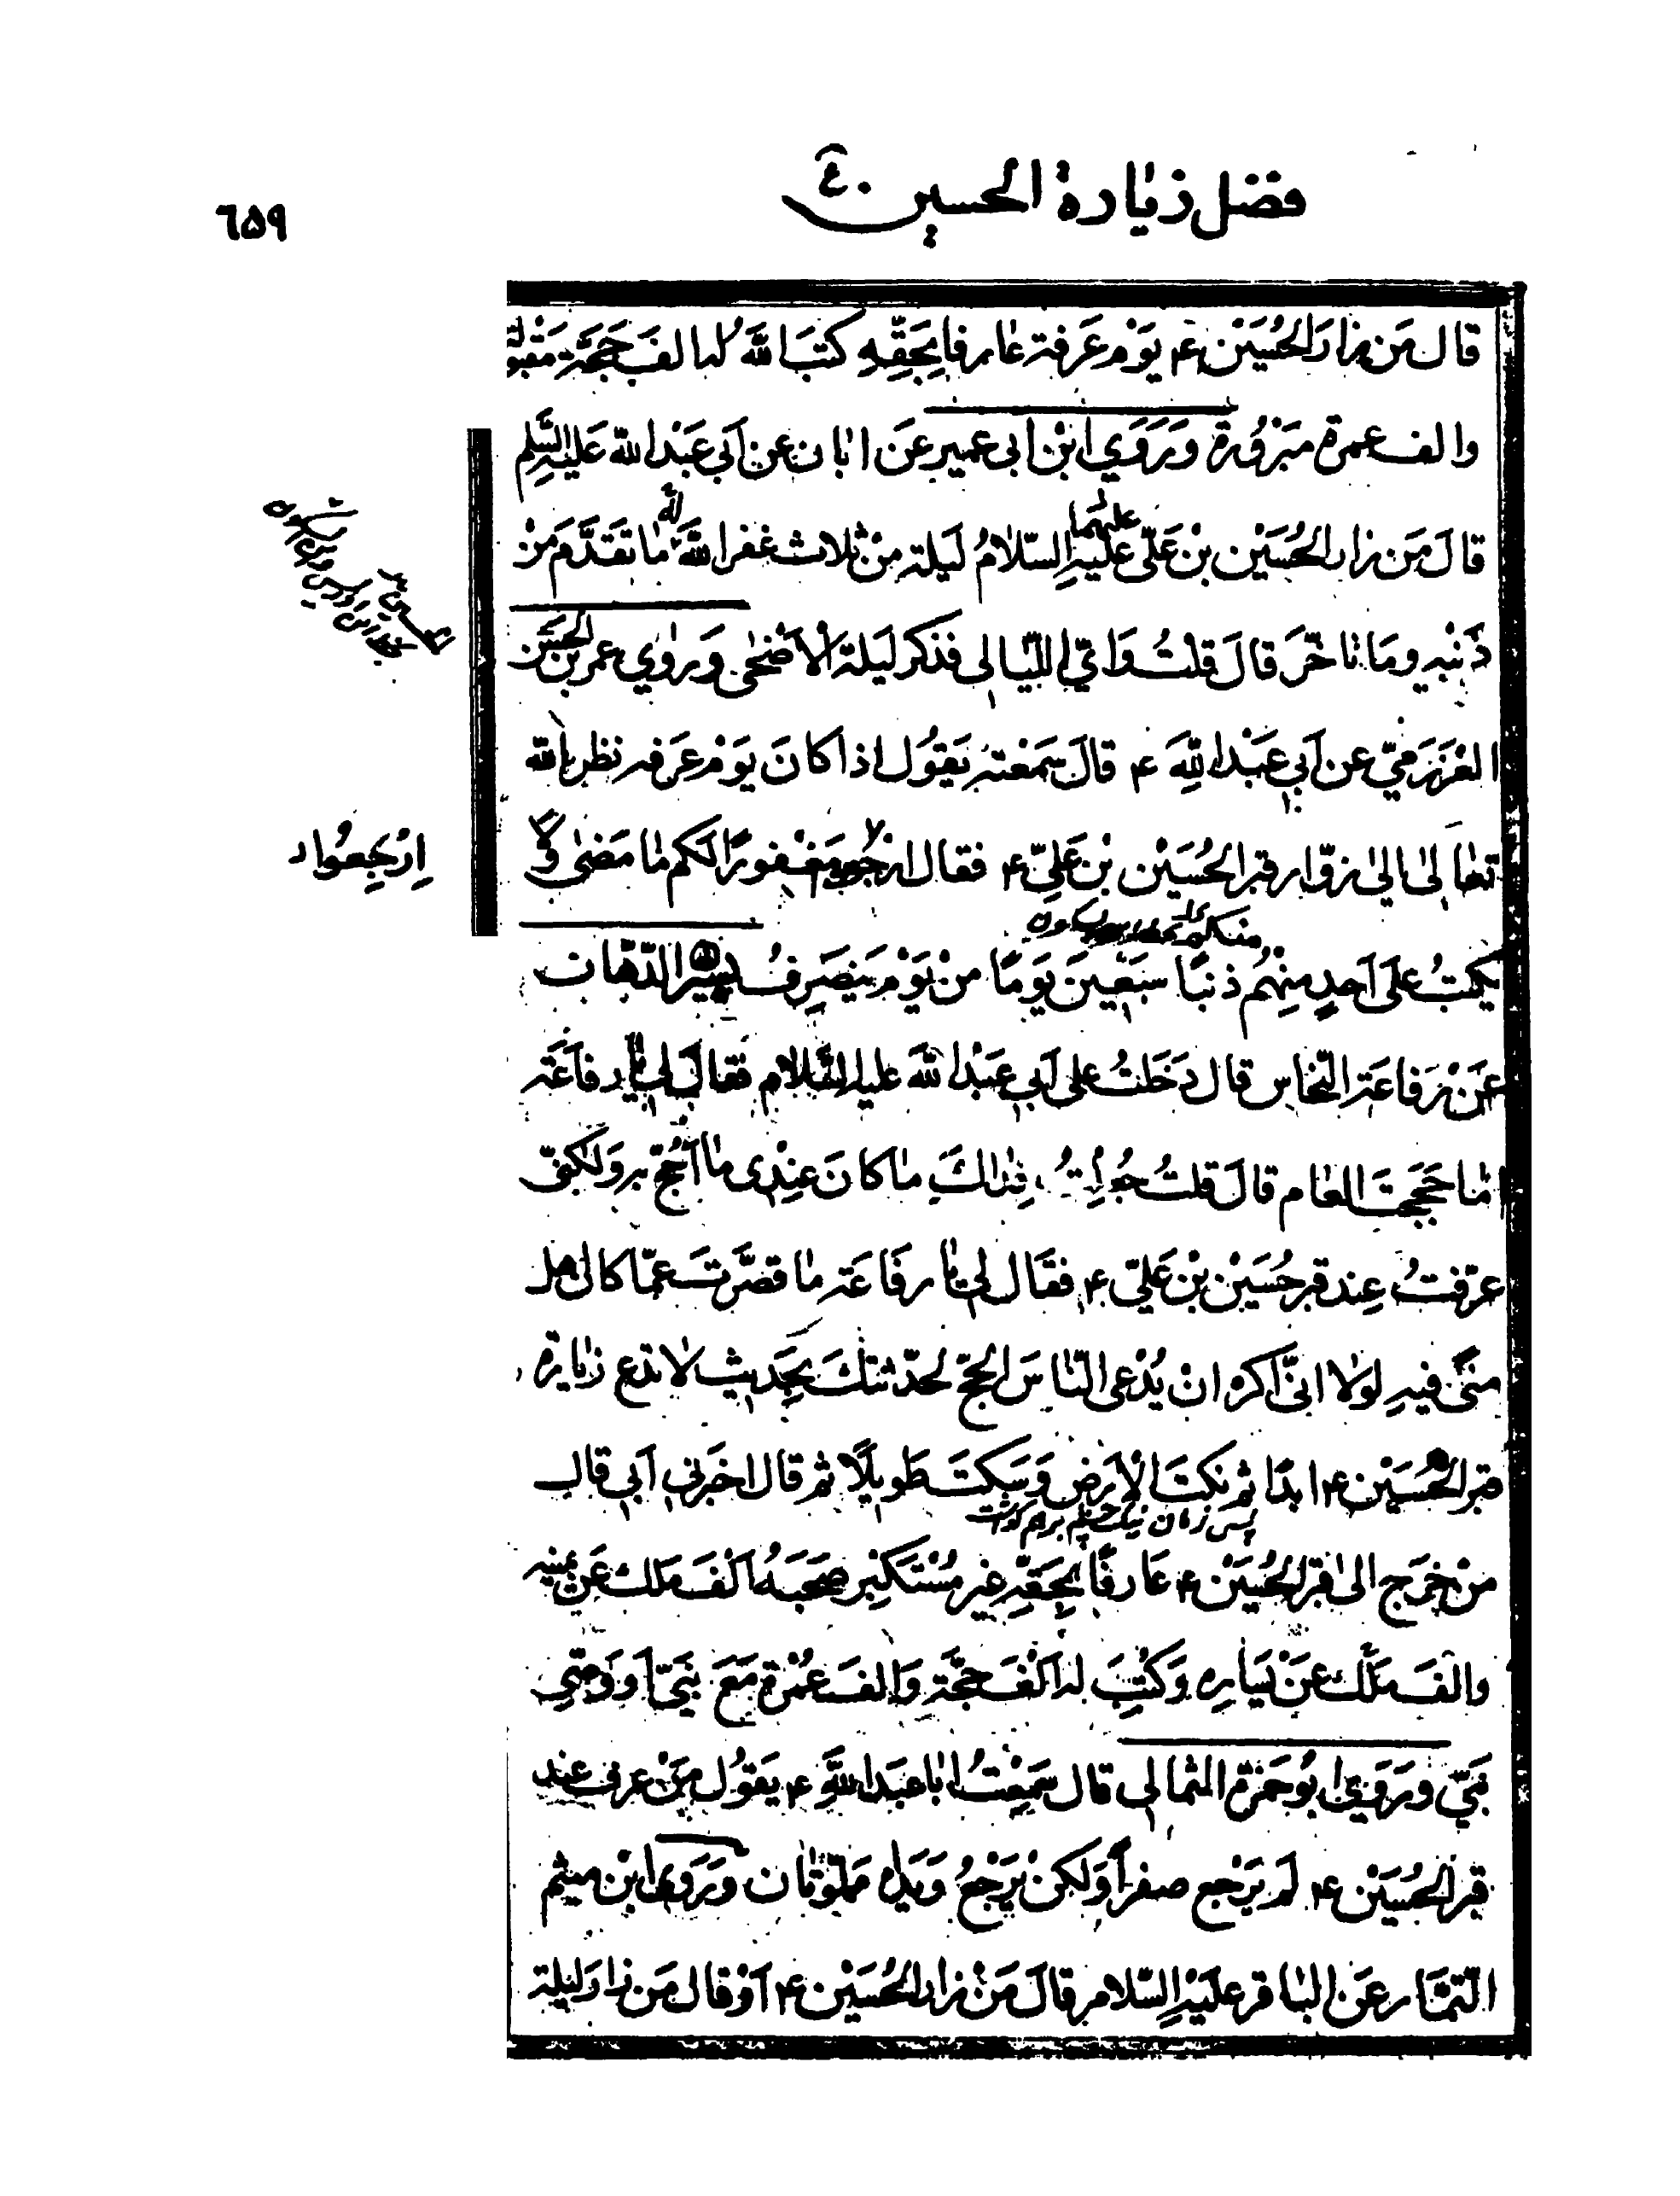 فضل زيارة الحسين ع
٦۵٩
قال مَن زارَ الحُسَيْن ع يَوْم عَرفة عارفا بِحَقِّهِ كتبَ اللّٰه له الفَ حَجَّة مَقْبُولة
والف عمرة مَبْرُورة وَرَوَىٰ ابْن ابى عمير عَن ابان عن اَبى عَبْد اللّٰه عَليه السَّلم
قالَ مَن زار الحُسَيْن بْن عَلىّ عليهِ السّلامُ لَيلة مِنْ ثلاث غفر اللّٰهُ ما تقدَّم مِنْ
عليهما
له
ذَنْبِه ومَا تاخّرَ قالَ قلتُ وَاىّ اللّيالى فذكر لَيلة الاَضْحٰى وَروٰى عمر بن الحَسَن
العَرْزَمىّ عن اَبى عَبْد اللّٰه ع قالَ سَمعْته يَقوُل اذا كانَ يَوْم عَرَفه نظر اللّٰه
تعالٰى الىٰ زوّار قبر الحُسَيْن بْن عَلِىّ ع فقال ارجعوا مَغْفورًا لكم ما مَضىٰ وَلا
اِرْجِعوُا
يكتبُ علَى اَحدٍ مِنْهُم ذنبًا سَبْعيِنَ يَومًا منْ يَوْم يَنصَرِفُ بَشير الدّهّان
عَنْ رفاعَة النّخاس قال دَخَلتُ على اَبى عَبْد اللّٰه عليه السَّلام فقالَ لى يا رفاعَة
اما حَجَجتَ العام قالَ قلتُ جُعِلْتُ فِداكَ ما كانَ عِنْدى ما اَحُجّ به وَلكِنّى
عرّفتُ عِند قبر حُسَيْن بْن عَلىّ ع فقَال لى يا رفَاعَة ما قصَّرتَ عمّا كان اهل
منىً فيهِ لولا انىّ اكره انْ يُدعى النّاسَ الحجّ لحدّثتكَ بِحَديث لا تدع زيارة
قبر الحُسَيْن ع ابدًا ثم نكتَ الاَرض وَسَكتَ طَويلًا ثم قال اخبَرنى اَبى قال
منْ خرَج الىٰ قبر الحُسَيْن ع عَارفًا بِحَقّهِ غير مُسْتَكْبِر صَحَبَهُ اَلْفَ مَلك عَن يَمينه
والفَ مَلَك عَنْ يَساره وَكُتِبَ له اَلْفَ حَجَّة وَالفَ عُمْرة مَعَ نَبىّ اَو وَصىِّ
نَبىّ ورَوىٰ ابُو حَمزة الثمالى قال سَمِعْتُ ابا عبَد اللّٰهِ ع يَقوُل مَنْ عرف عند
قبر الحُسَيْن ع لَم يَرْجع صفراً وَلكن يَرْجعُ وَيداه مَملوّتان وَرَوىٰ ابْن ميثم
التمّار عَن الباقر عليْهِ السّلام قالَ مَنْ زار الحُسَيْن ع اَوْ قال مَن زارَ ليلة